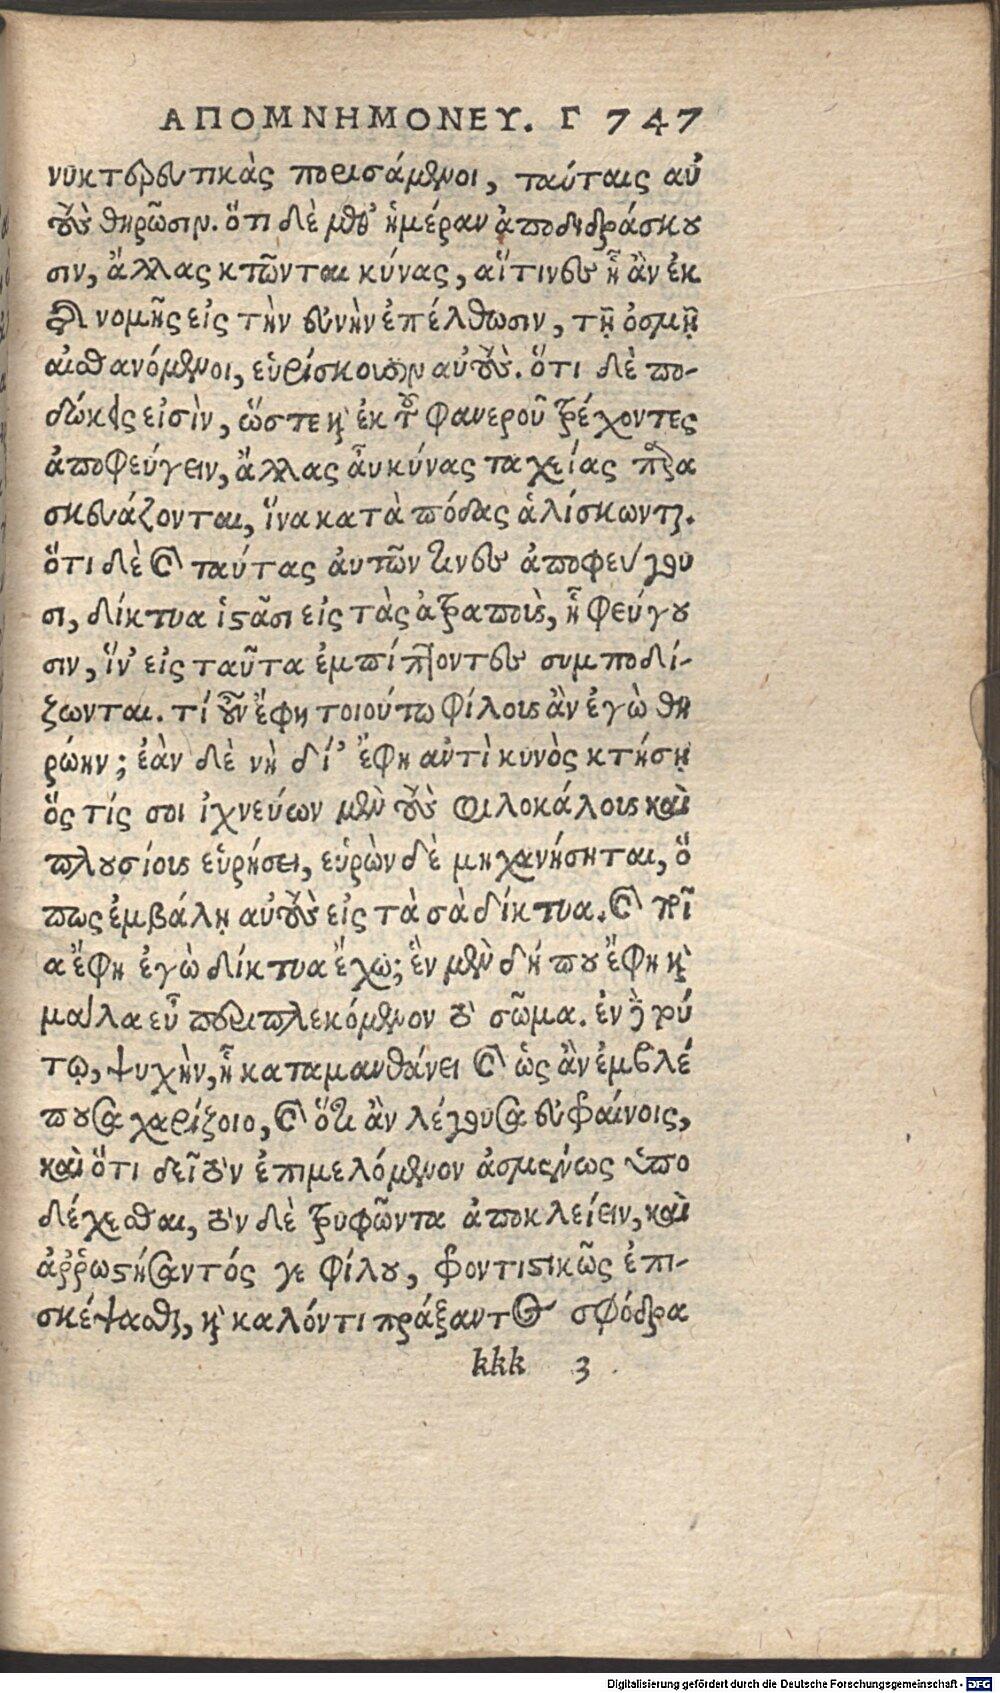 ΑΠΟΜΝΗΜΟΝΕΥ. Γ 747
νυκτερευτικὰς πορισάμενοι, ταύταις αὐ
τοὺς θηρῶσιν. ὅτι δὲ μεθ' ἡμέραν ἀποδιδράσκου
σιν, ἄλλας κτῶνται κύνας, αἵτινες ᾗ ἂν ἐκ
τῆς νομῆς εἰς τὴν εὐνὴν ἐπέλθωσιν, τῇ ὀσμῇ
αἰσθανόμενοι, εὑρίσκουσιν αὐτούς. ὅτι δὲ πο-
δώκεις εἰσὶν, ὥστε καὶ ἐκ τοῦ φανεροῦ τρέχοντες
ἀποφεύγειν, ἄλλας αὖ κύνας ταχείας παρα
σκευάζονται, ἵνα κατὰ πόδας ἁλίσκωνται.
ὅτι δὲ καὶ ταύτας αὐτῶν τινες ἀποφεύγου
σι, δίκτυα ἱστᾶσι εἰς τὰς ἀτραποὺς, ᾗ φεύγου
σιν, ἵν' εἰς ταῦτα ἐμπίπτοντες συμποδί-
ζωνται. τί οὖν ἔφη τοιούτῳ φίλους ἂν ἐγὼ θη
ρῴην; ἐὰν δὲ νὴ δί' ἔφη αντὶ κυνὸς κτήσῃ
ὅς τίς σοι ἰχνεύων μὲν τοὺς φιλοκάλους καὶ
πλουσίους εὑρήσει, εὑρὼν δὲ μηχανήσηται, ὅ
πως ἐμβάλῃ αὐτοὺς εἰς τὰ σὰ δίκτυα. καὶ ποῖ
α ἔφη ἐγὼ δίκτυα ἔχω; ἓν μὲν δή που ἔφη καὶ
μάλα εὖ περιπλεκόμενον τὸ σῶμα. ἐν δὲ τού
τῳ, ψυχὴν, ᾗ καταμανθάνει καὶ ὡς ἂν ἐμβλέ
πουσα χαρίζοιο, καὶ ὅτι ἂν λέγουσα εὐφραίνοις,
καὶ ὅτι δεῖ τὸν ἐπιμελόμενον ἀσμένως ὑπο
δέχεσθαι, τὸν δὲ τρυφῶντα ἀποκλείειν, καὶ
ἀῤῥωστήσαντός γε φίλου, φροντιστικῶς ἐπι-
σκέψασθαι, καὶ καλόν τι πράξαντος σφόδρα
kkk 3
Digitalisierung gefördert durch die Deutsche Forschungsgemeinschaft - DFG